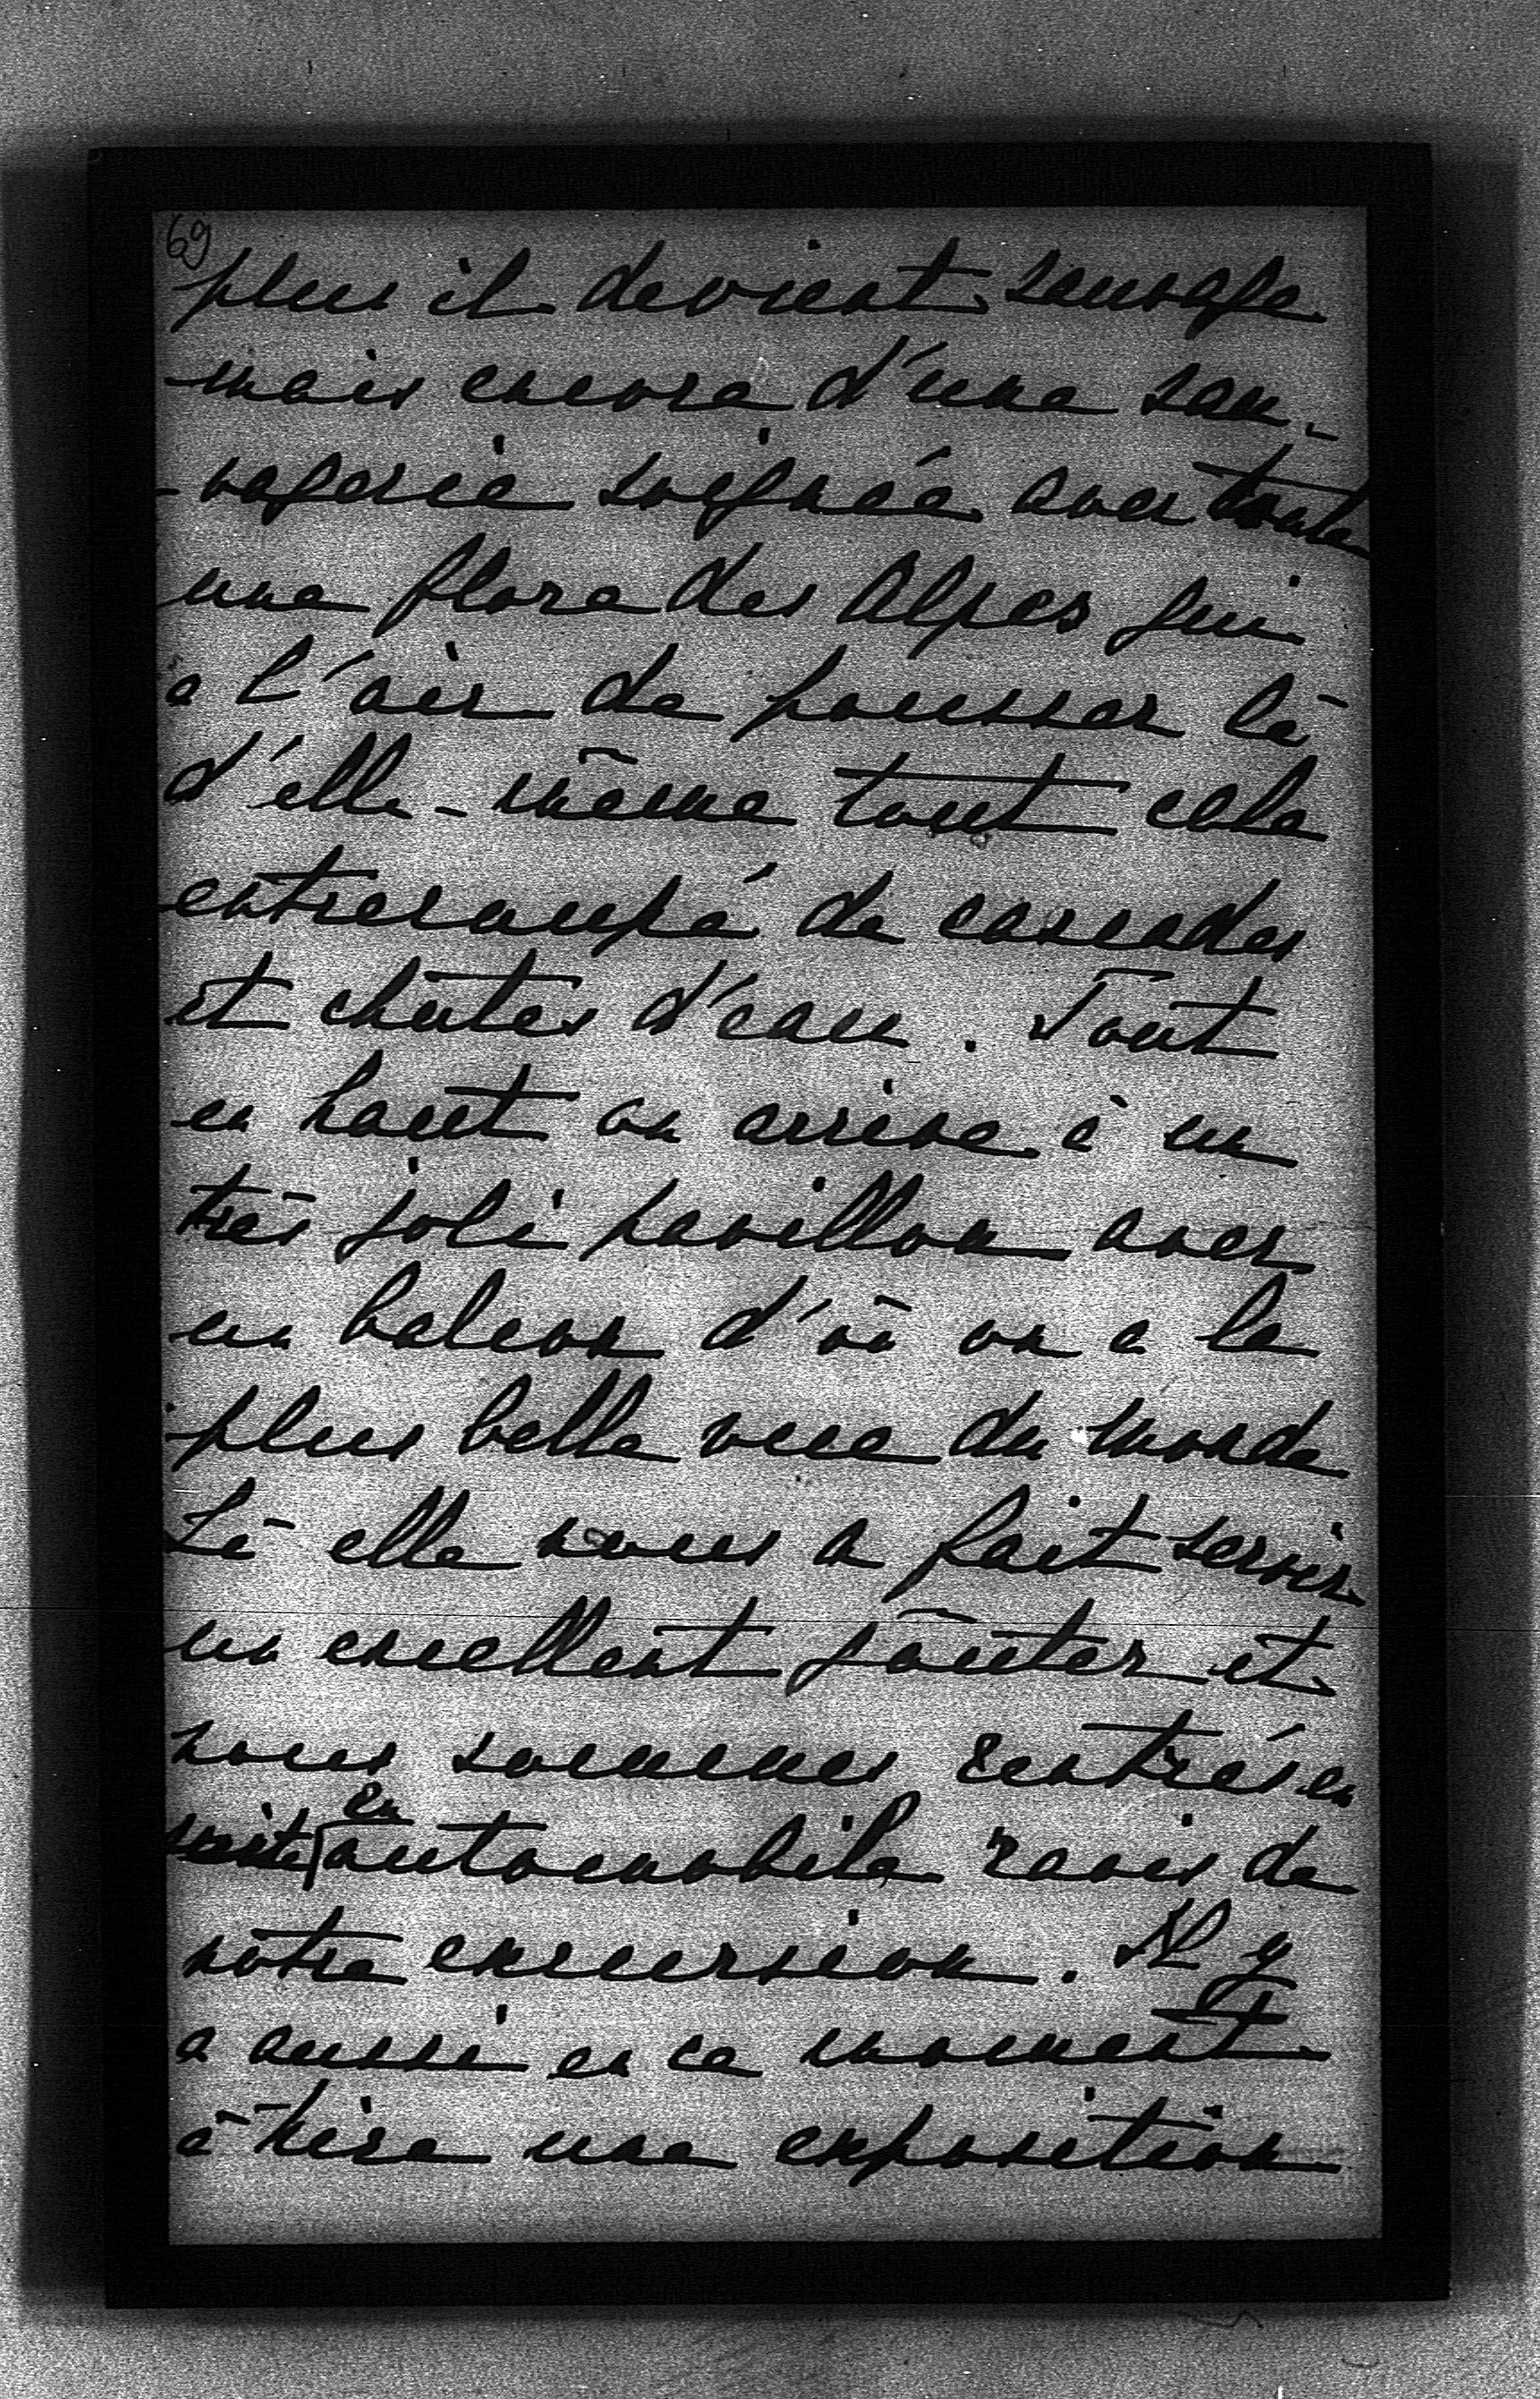 69
plus il devient sauvage
mais encore d'une sau-
-vagerie soignée avec toute
une flore des Alpes qui
a l'air de pousser là
d'elle-même tout cela
entrecoupé de cascades
et chutes d'eau. Tout
en haut on arrive à un
très joli pavillon avec
un balcon d'où on a la
plus belle vue du monde
Là elle nous a fait servir
un excellent goûter et
nous sommes rentrés en
suite en automobile ravis de
notre excursion. Il y
a aussi en ce moment
à une exposition